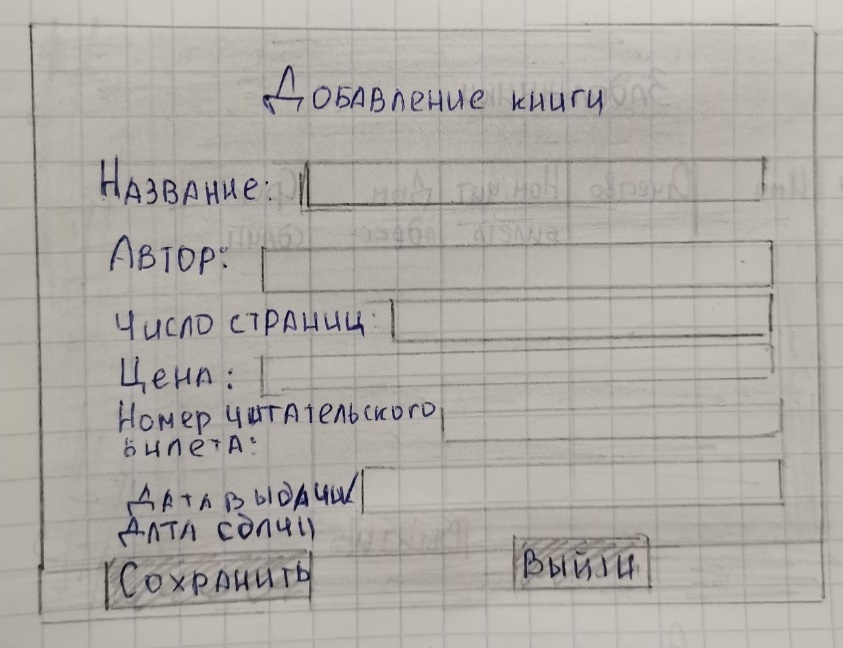 Добавление книги
Название:
Автор:
Число страниц:
Цена:
Номер читательского
билета:
Дата выдачи/
Дата сдачи
Сохранить
Выйти